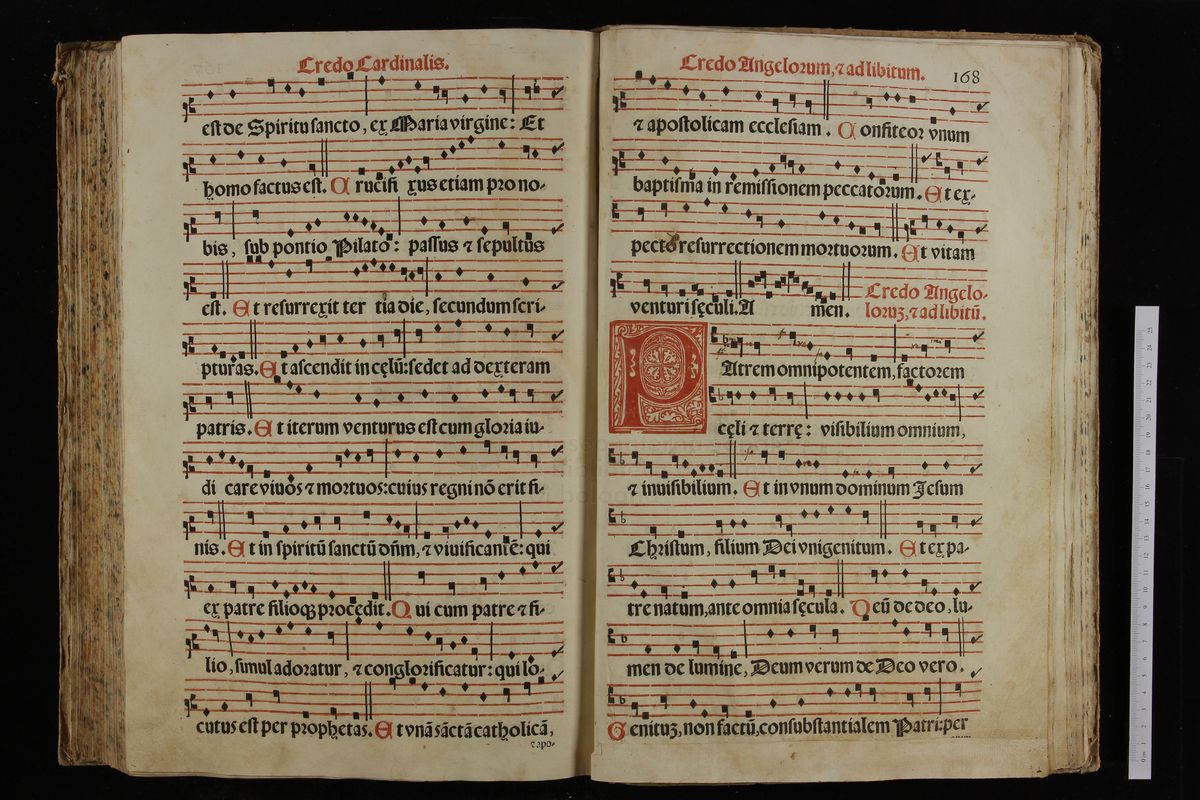 Credo Cardinalis.
est de Spiritu sancto, ex Maria virgine: Et
homo factus est. C rucifi xus etiam pro no-
bis, sub pontio Pilato: passus ⁊ sepultus
est. Et resurrexit ter tia die, secundum scri-
pturas. Et ascendit in cęlū: sedet ad dexteram
patris. Et iterum venturus est cum gloria iu-
di care viuos ⁊ mortuos: cuius regni nō erit fi-
nis. Et in spiritū sanctū dn̄m, ⁊ viuificantē: qui
ex patre filioqꝫ procedit. Q ui cum patre ⁊ fi-
lio, simul adoratur, ⁊ conglorificatur: qui lo-
cutus est per prophetas. Et vnā sāctā catholicā,
⁊ apo-
Credo Angelorum, ⁊ ad libitum. 168
⁊ apostolicam ecclesiam. C onfiteor vnum
baptisma in remissionem peccatorum. Et ex-
pecto resurrectionem mortuorum. Et vitam
venturi sęculi. A men. Credo Angelo-
loruꝫ, ⁊ ad libitū.
PAtrem omnipotentem, factorem
cęli ⁊ terrę: visibilium omnium,
⁊ inuisibilium. Et in vnum dominum Jesum
Christum, filium Dei vnigenitum. Et ex pa-
tre natum, ante omnia sęcula. Deū de deo, lu-
men de lumine, Deum verum de Deo vero.
Genituꝫ, non factū, consubstantialem Patri: per